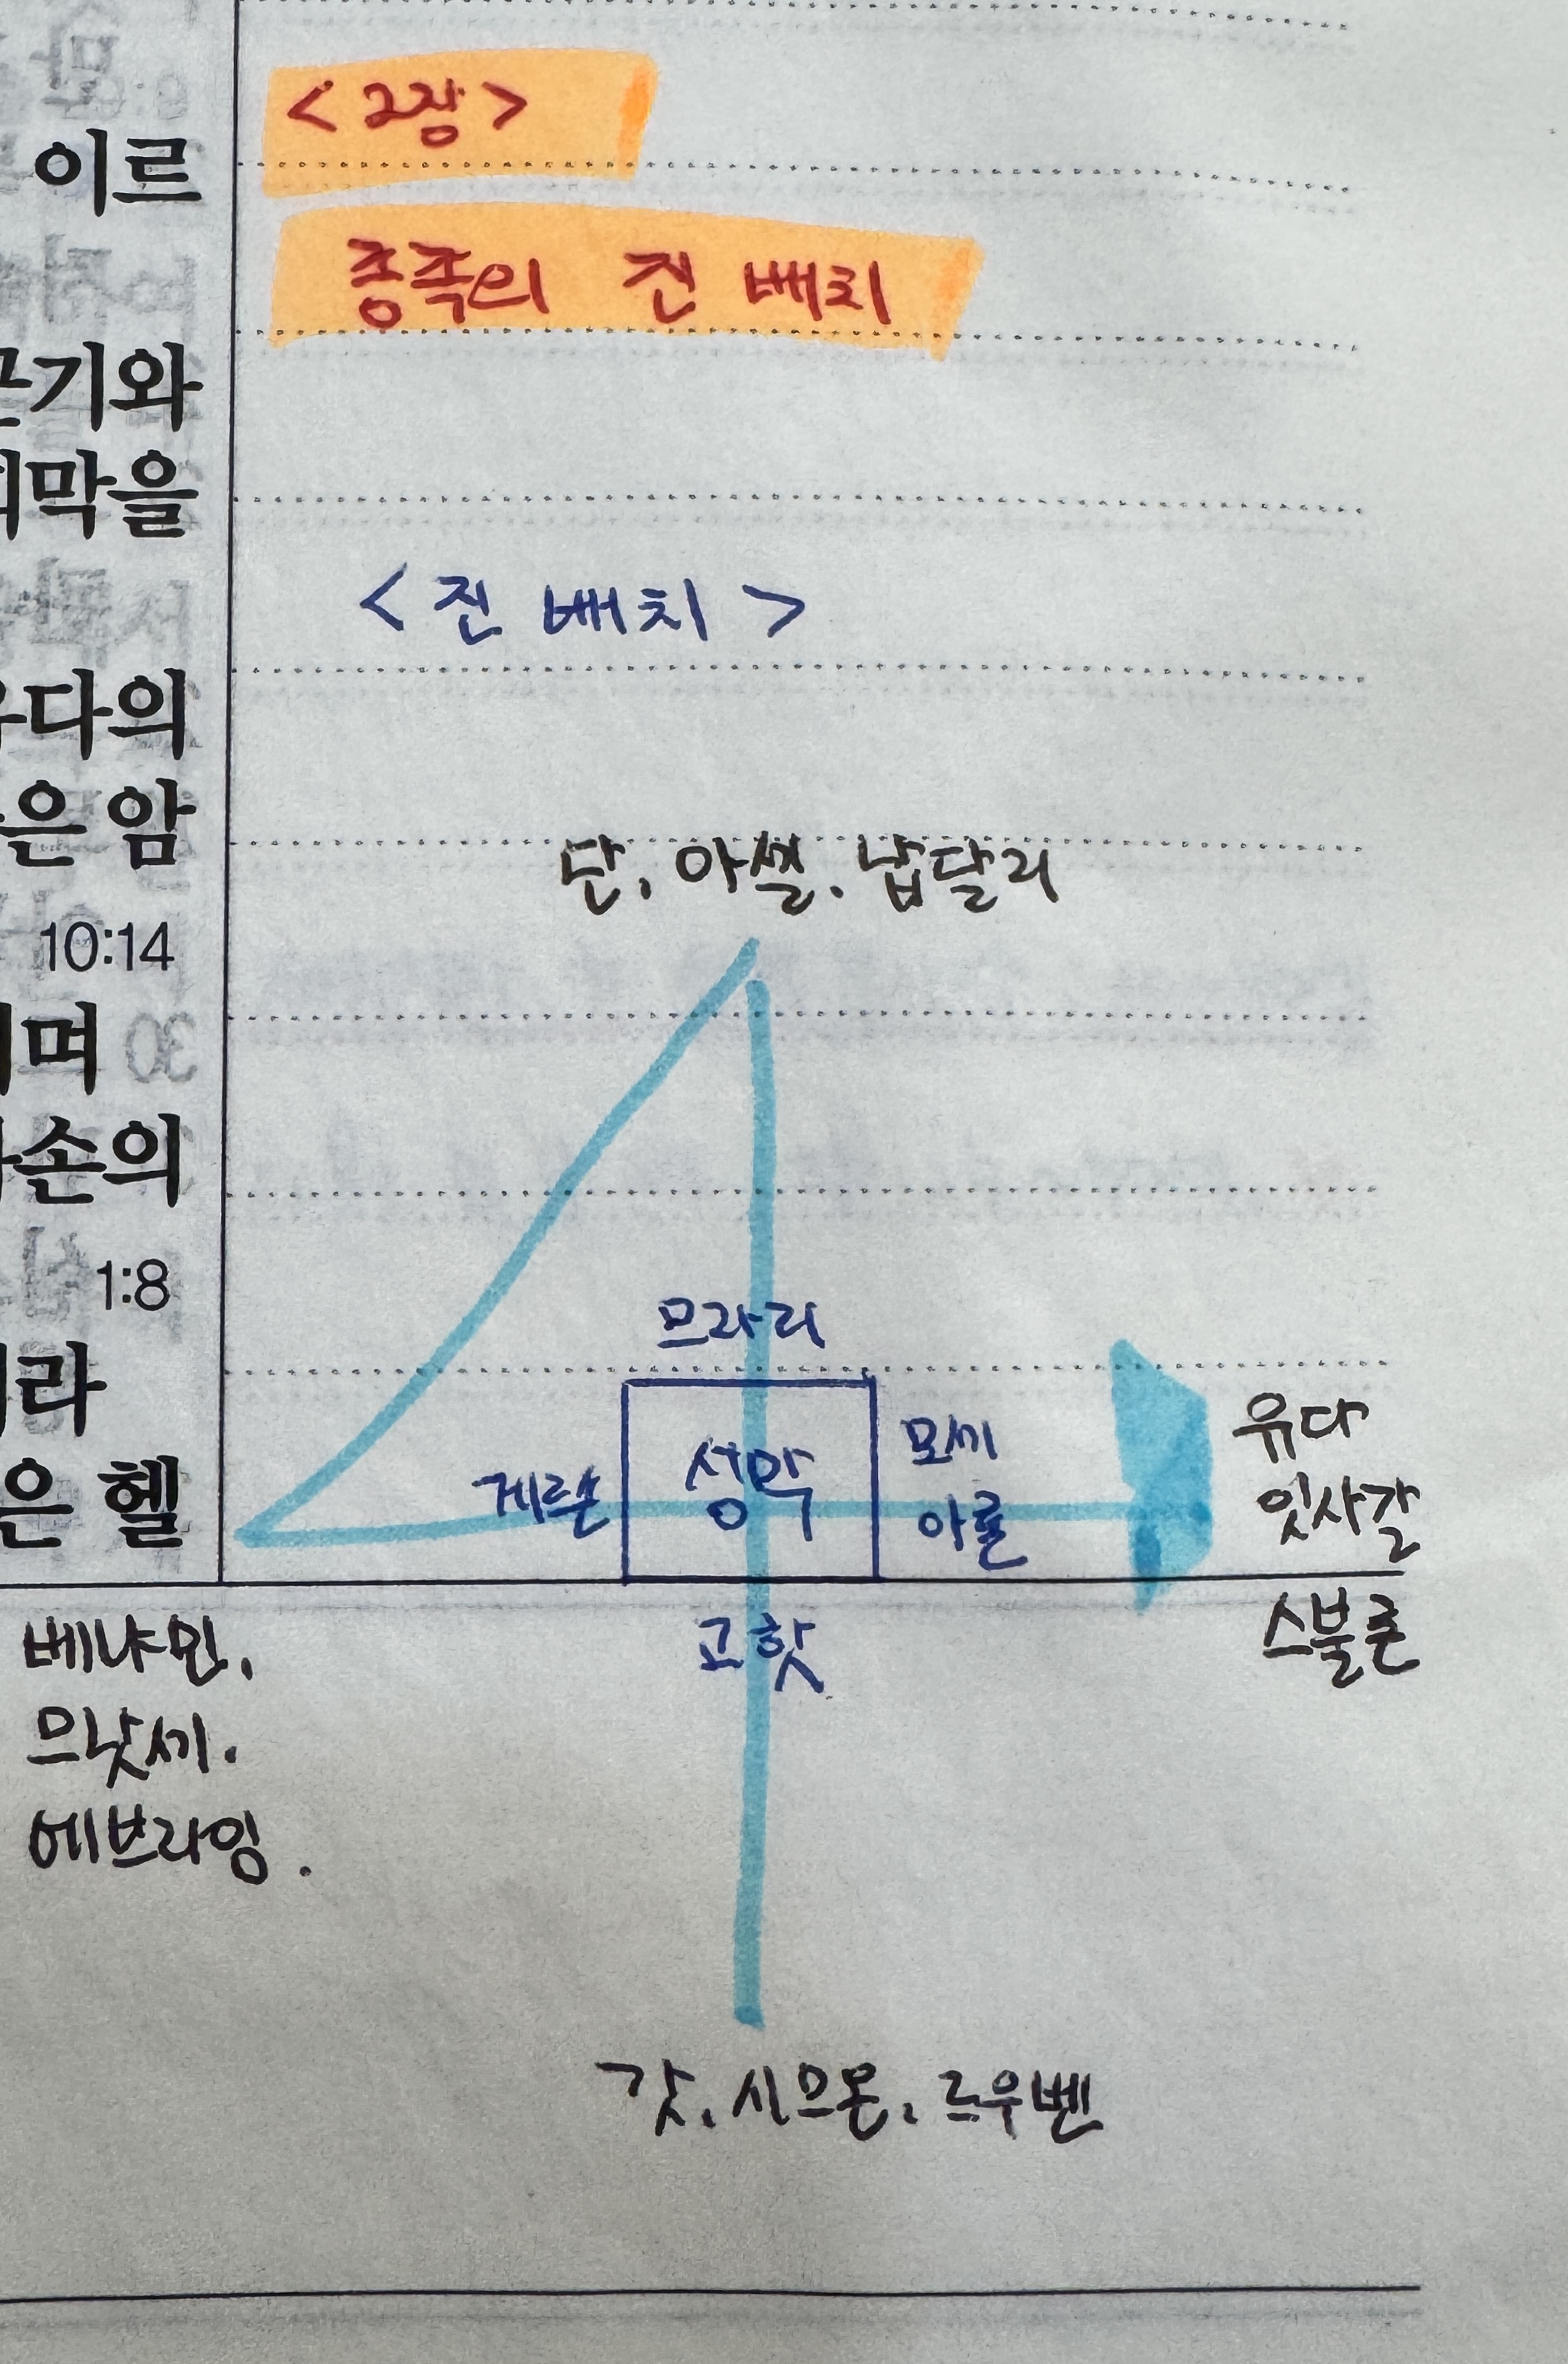 <2장>
이르
종족의 진 배치
기와
막을
<진 배치>
다의
은 암
단, 아셀, 납달리
10:14
며
손의
1:8
므라리
라
은 헬
게르손
성막
모세
아론
유다
잇사갈
스불론
고핫
베냐민,
므낫세.
에브라임.
갓, 시므온, 르우벤